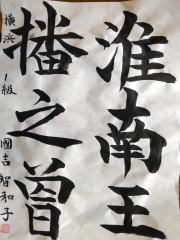 淮南王
播之曽
横浜 1級 國吉智和子